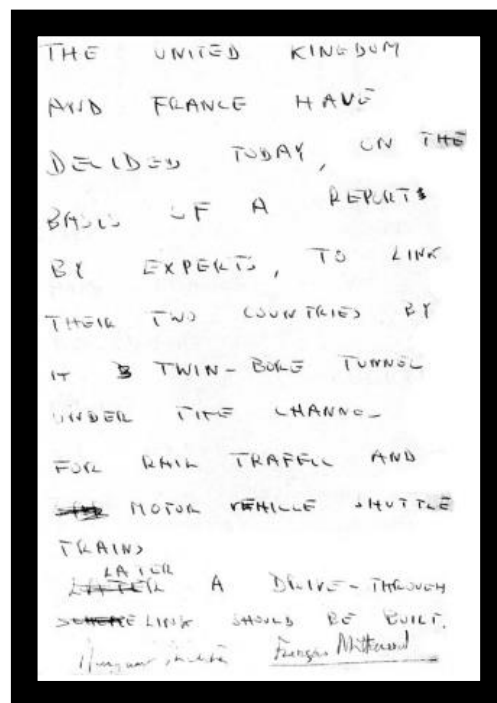 THE UNITED KINGDOM
AND FRANCE HAVE
DECIDED TODAY, ON THE
BASIS OF A REPORTS
BY EXPERTS, TO LINK
THEIR TWO COUNTRIES BY
IT TWIN-BORE TUNNEL
UNDER THE CHANNEL
FOR RAIL TRAFFIC AND
MOTOR VEHICLE SHUTTLE
TRAINS
LATER
LATER A DRIVE-THROUGH
SCHEME LINK SHOULD BE BUILT.
François Mitterrand